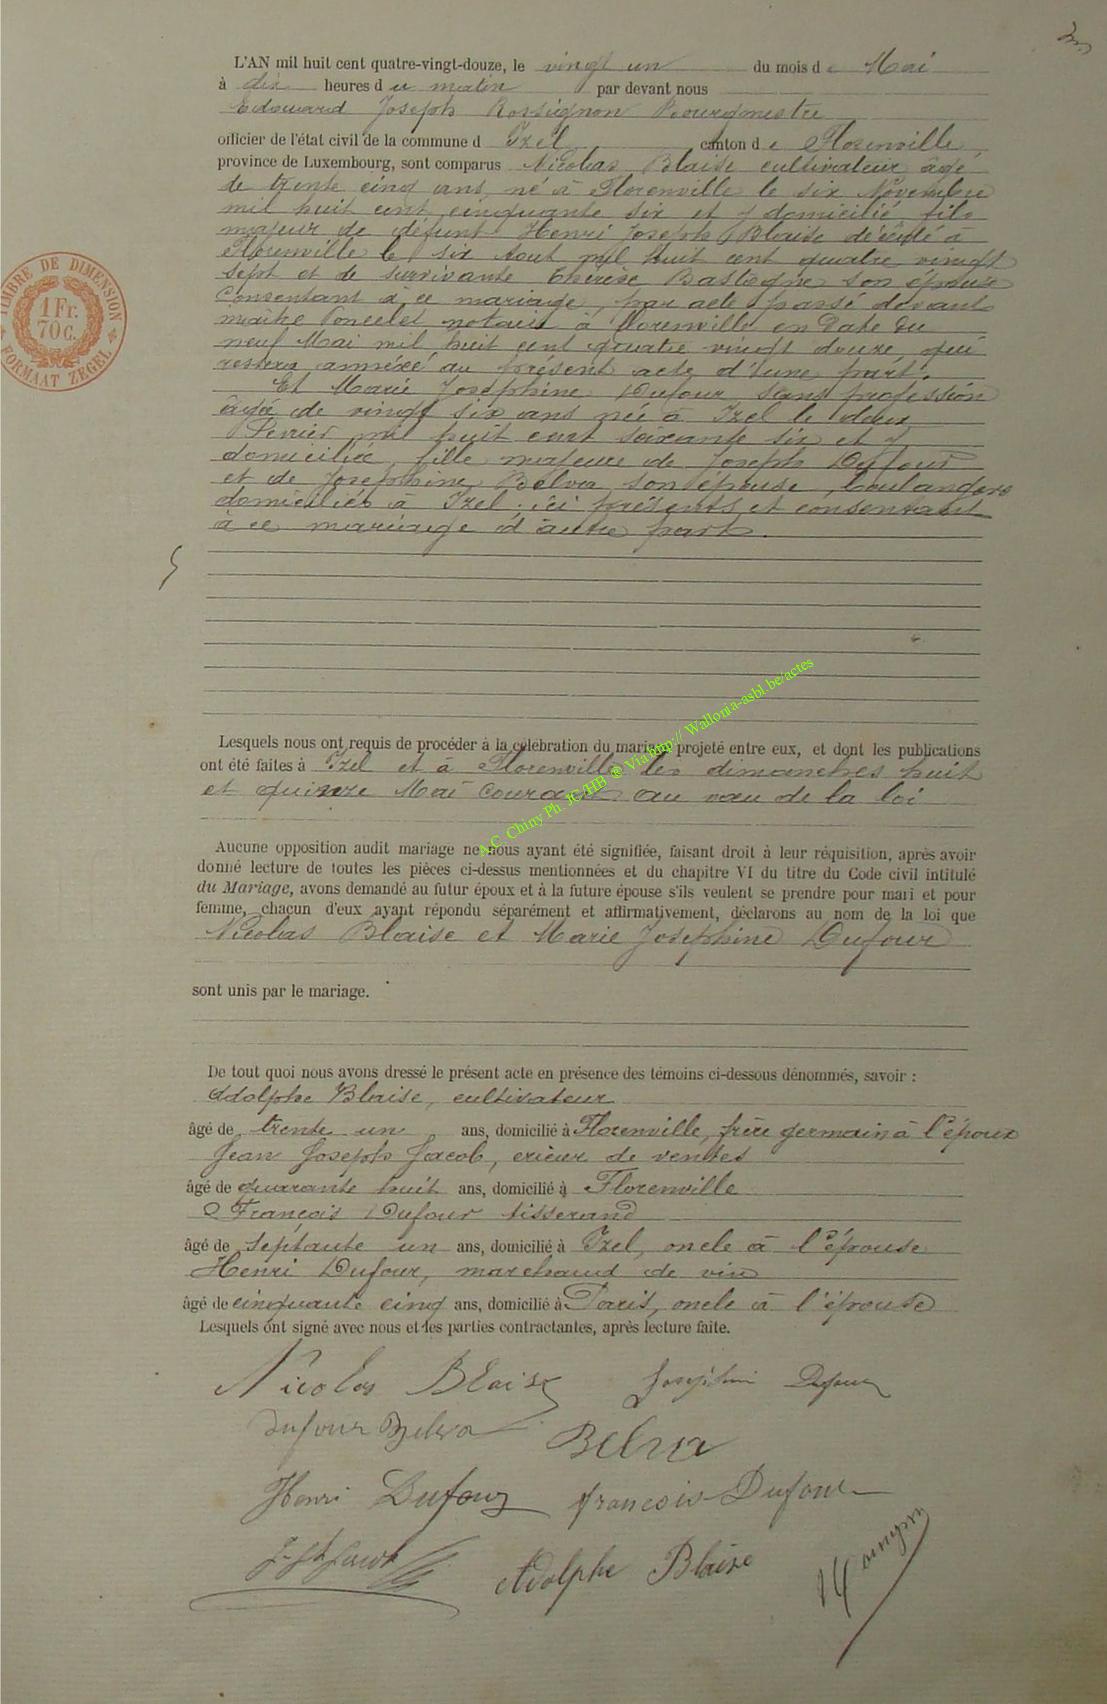 L'AN mil huit cent quatre-vingt-douze, le vingt un du mois de Mai
à dix heures du matin par devant nous
Edouard Joseph Rossignon Bourgmestre
officier de l'état civil de la commune d Izel canton de Florenville
province de Luxembourg, sont comparus Nicolas Blaise cultivateur âgé
de trente cinq ans, né à Florenville le six Novembre
mil huit cent cinquante six et y domicilié, fils
majeur de défunt Henri Joseph Blaise décédé à
Florenville le six Aout mil huit cent quatre vingt
sept et de survivante Thérèse Bastogne son épouse
Consentant à ce mariage, par acte passé devant
maître Poncelet notaire à Florenville en Date du
neuf Mai mil huit cent quatre vingt douze, qui
restera annéxé au présent acte d'une part.
Et Marie Joséphine Dufour sans profession
âgée de vingt six ans née à Izel le deux
Février mil huit cent soixante six et y
domiciliée, fille majeure de Joseph Dufour
et de Josephine Belva son épouse, boulangers
domiciliés à Izel ici présents et consentant
à ce mariage d'autre part.
Lesquels nous ont requis de procéder à la célébration du mariage projeté entre eux, et dont les publications
ont été faites à Izel et à Florenville les dimanches huit
et quinze Mai courant au vœu de la loi
Aucune opposition audit mariage ne nous ayant été signifiée, faisant droit à leur réquisition, après avoir
donné lecture de toutes les pièces ci-dessus mentionnées et du chapitre VI du titre du Code civil intitulé
du Mariage, avons demandé au futur époux et à la future épouse s'ils veulent se prendre pour mari et pour
femme, chacun d'eux ayant répondu séparément et affirmativement, déclarons au nom de la loi que
Nicolas Blaise et Marie Josephine Dufour
sont unis par le mariage.
De tout quoi nous avons dressé le présent acte en présence des témoins ci-dessous dénommés, savoir :
Adolphe Blaise, cultivateur
âgé de trente un ans, domicilié à Florenville, frère germain à l'époux
Jean Joseph Jacob, crieur de ventes
âgé de quarante huit ans, domicilié à Florenville
François Dufour tisserand
âgé de septante un ans, domicilié à Izel, oncle à l'épouse
Henri Dufour, marchand de vin
âgé de cinquante cinq ans, domicilié à Paris, oncle à l'épouse
Lesquels ont signé avec nous et les parties contractantes, après lecture faite.
Nicolas Blaise Joséphine Dufour
Dufour Belva Belva
Henri Dufour françois Dufour
J. Jh Jacob Adolphe Blaise Rossignon
TIMBRE DE DIMENSION
1 Fr.
70 C.
FORMAAT ZEGEL
A.C. Chiny Ph. JC/HB ® Via http:// Wallonia-asbl.be/actes